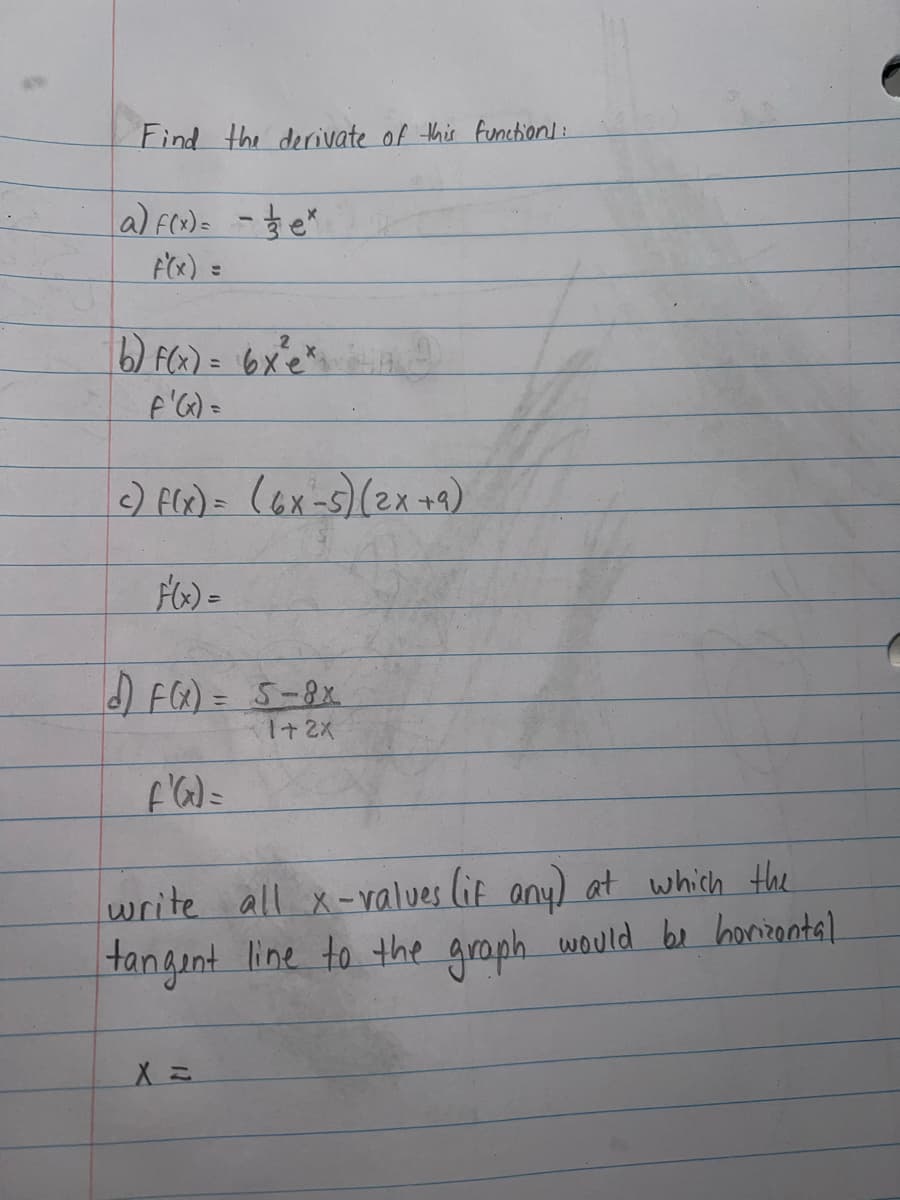 Find the derivate of this functions:
a) f(x) = - 1/3 e^x
f'(x) =
b) f(x) = 6x^2e^x
f'(x) =
c) f(x) = (6x-5)(2x+9)
f'(x) =
d) f(x) = 5-8x
1+2x
f'(x) =
write all x-values (if any) at which the
tangent line to the graph would be horizontal
x =